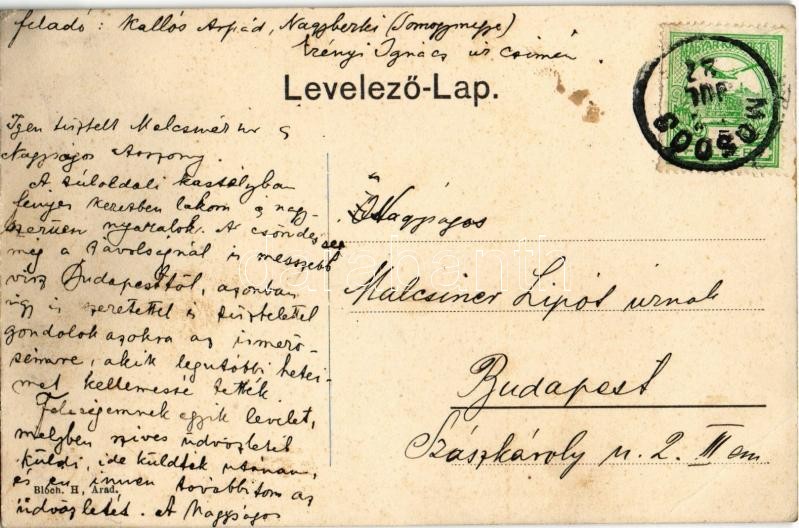 feladó: Kallós Árpád, Nagyberki (Somogymegye)
Erényi Ignácz úr címén.
Levelező-Lap.
MOSDÓS
JUL
27
MAGYAR KIR. POSTA
Igen tisztelt Malcsiner úr és
Nagyságos Asszony.
A túloldali kastélyban
fényes keretben lakom és nagy-
szerüen nyaralok. A csöndesség
még a távolságnál is messzebb
visz Budapesttől, azonban
így is szeretettel és tisztelettel
gondolok azokra az ismerő-
seimre, akik legutóbbi hetei-
met kellemessé tették.
Feleségemnek egyik levelét,
melyben szives üdvözletét
küldi, ide küldték utánam,
és én innen továbbítom az
üdvözletet. A Nagyságos
Nagyságos
Malcsiner Lipót úrnak
Budapest
Szászkároly u. 2. III em
Bloch. H, Arad.
darabanth